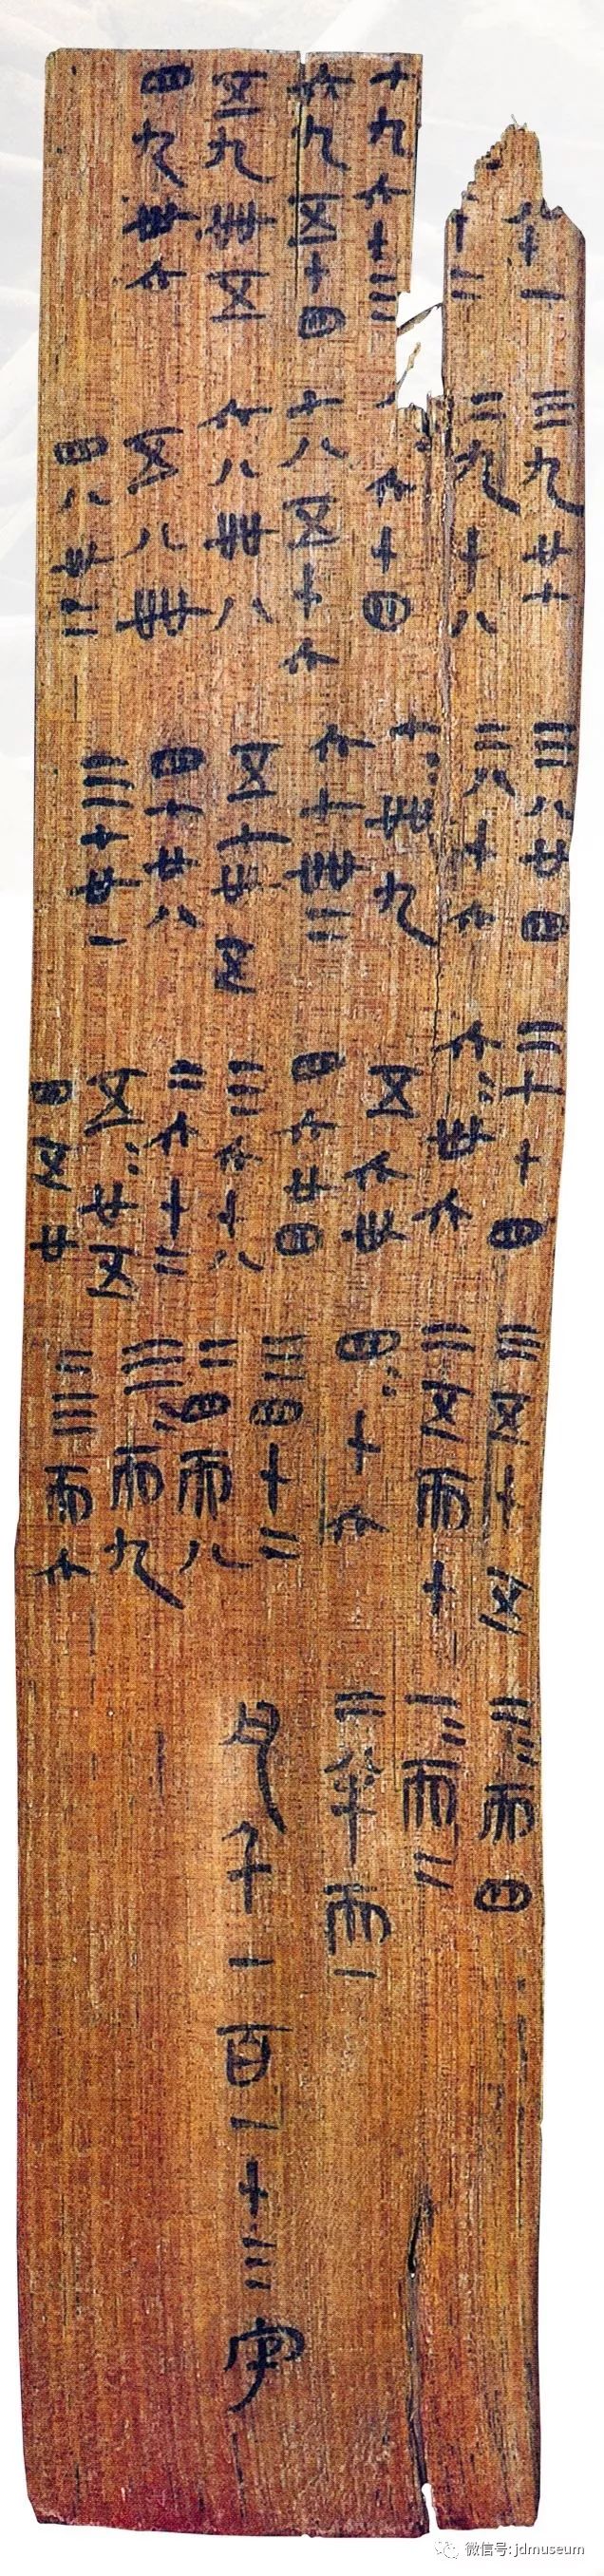 八十一
十二
七九六十三
六九五十四
五九卌五
四九卅六
三九廿七
二九十八
六十四
七八五十六
六八卌八
五八卌
四八卅二
三八廿四
二八十六
七=卌九
六七卌二
五七卅五
四七廿八
三七廿一
二七十四
六=卅六
五六卅
四六廿四
三六十八
二六十二
五=廿五
四五廿
三五十五
二五而十
四=十六
三四十二
二四而八
三=而九
二三而六
二=而四
一=而二
二半而一
凡千一百一十三字
微信号: jdmuseum